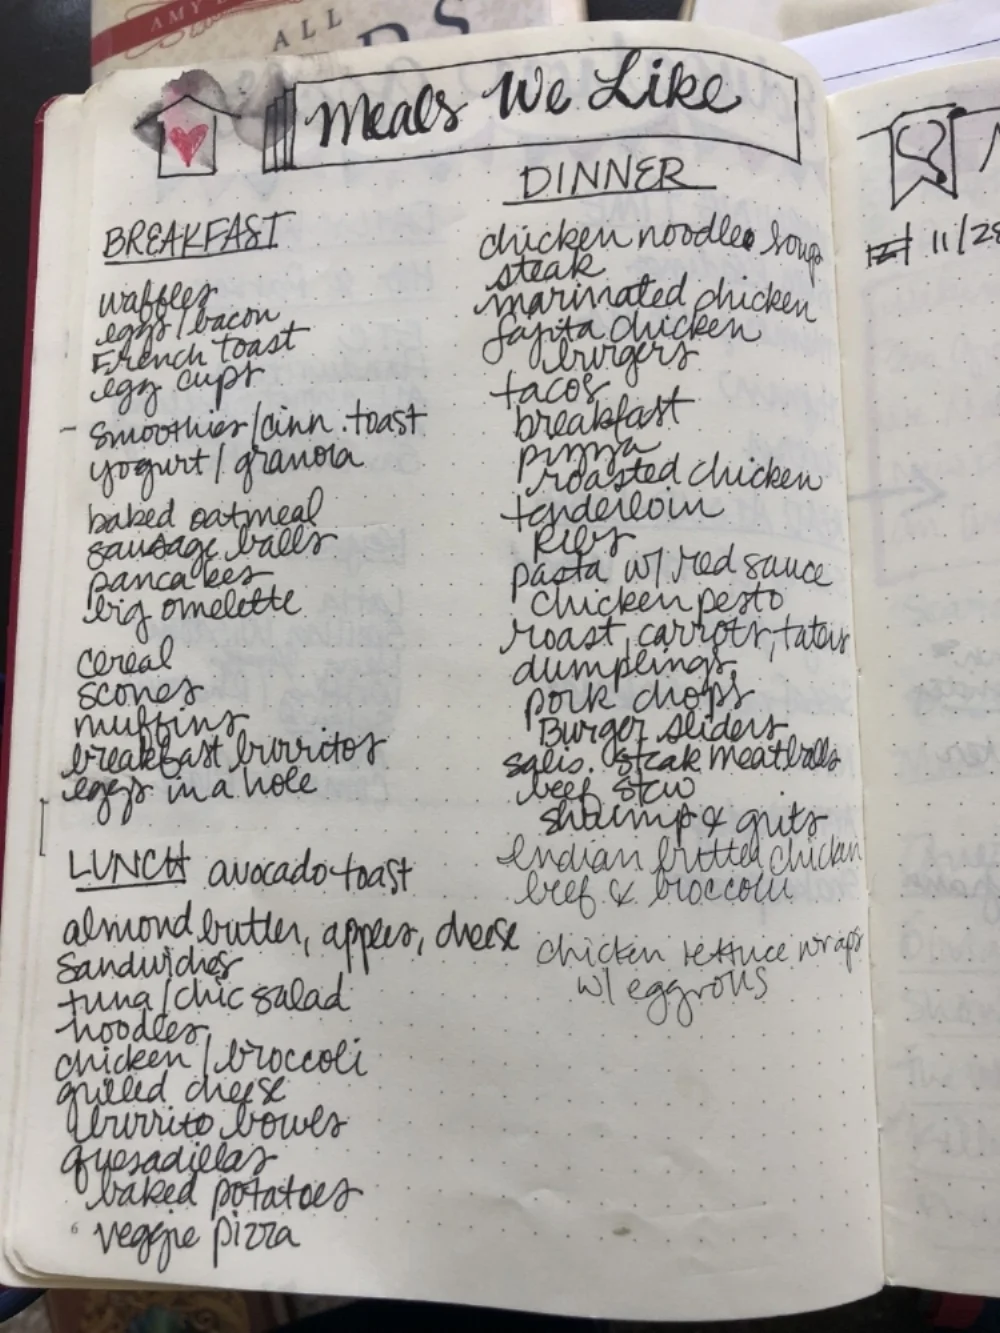 AMY
ALL
Meals We Like
BREAKFAST
waffles
eggs/bacon
French toast
egg cups
- smoothies/cinn. toast
yogurt/granola
baked oatmeal
sausage balls
pancakes
big omelette
cereal
scones
muffins
breakfast burritos
eggs in a hole
LUNCH avocado toast
almond butter, apples, cheese
sandwiches
tuna/chic salad
noodles
chicken/broccoli
grilled cheese
burrito bowls
quesadillas
baked potatoes
6 veggie pizza
DINNER
chicken noodle soup
steak
marinated chicken
fajita chicken
burgers
tacos
breakfast
pizza
roasted chicken
tenderloin
Ribs
pasta w/ red sauce
chicken pesto
roast, carrots, taters
dumplings
pork chops
Burger sliders
salis. steak meatballs
beef stew
shrimp & grits
Indian butter chicken
beef & broccoli
chicken lettuce wraps
w/ eggrolls
11/28